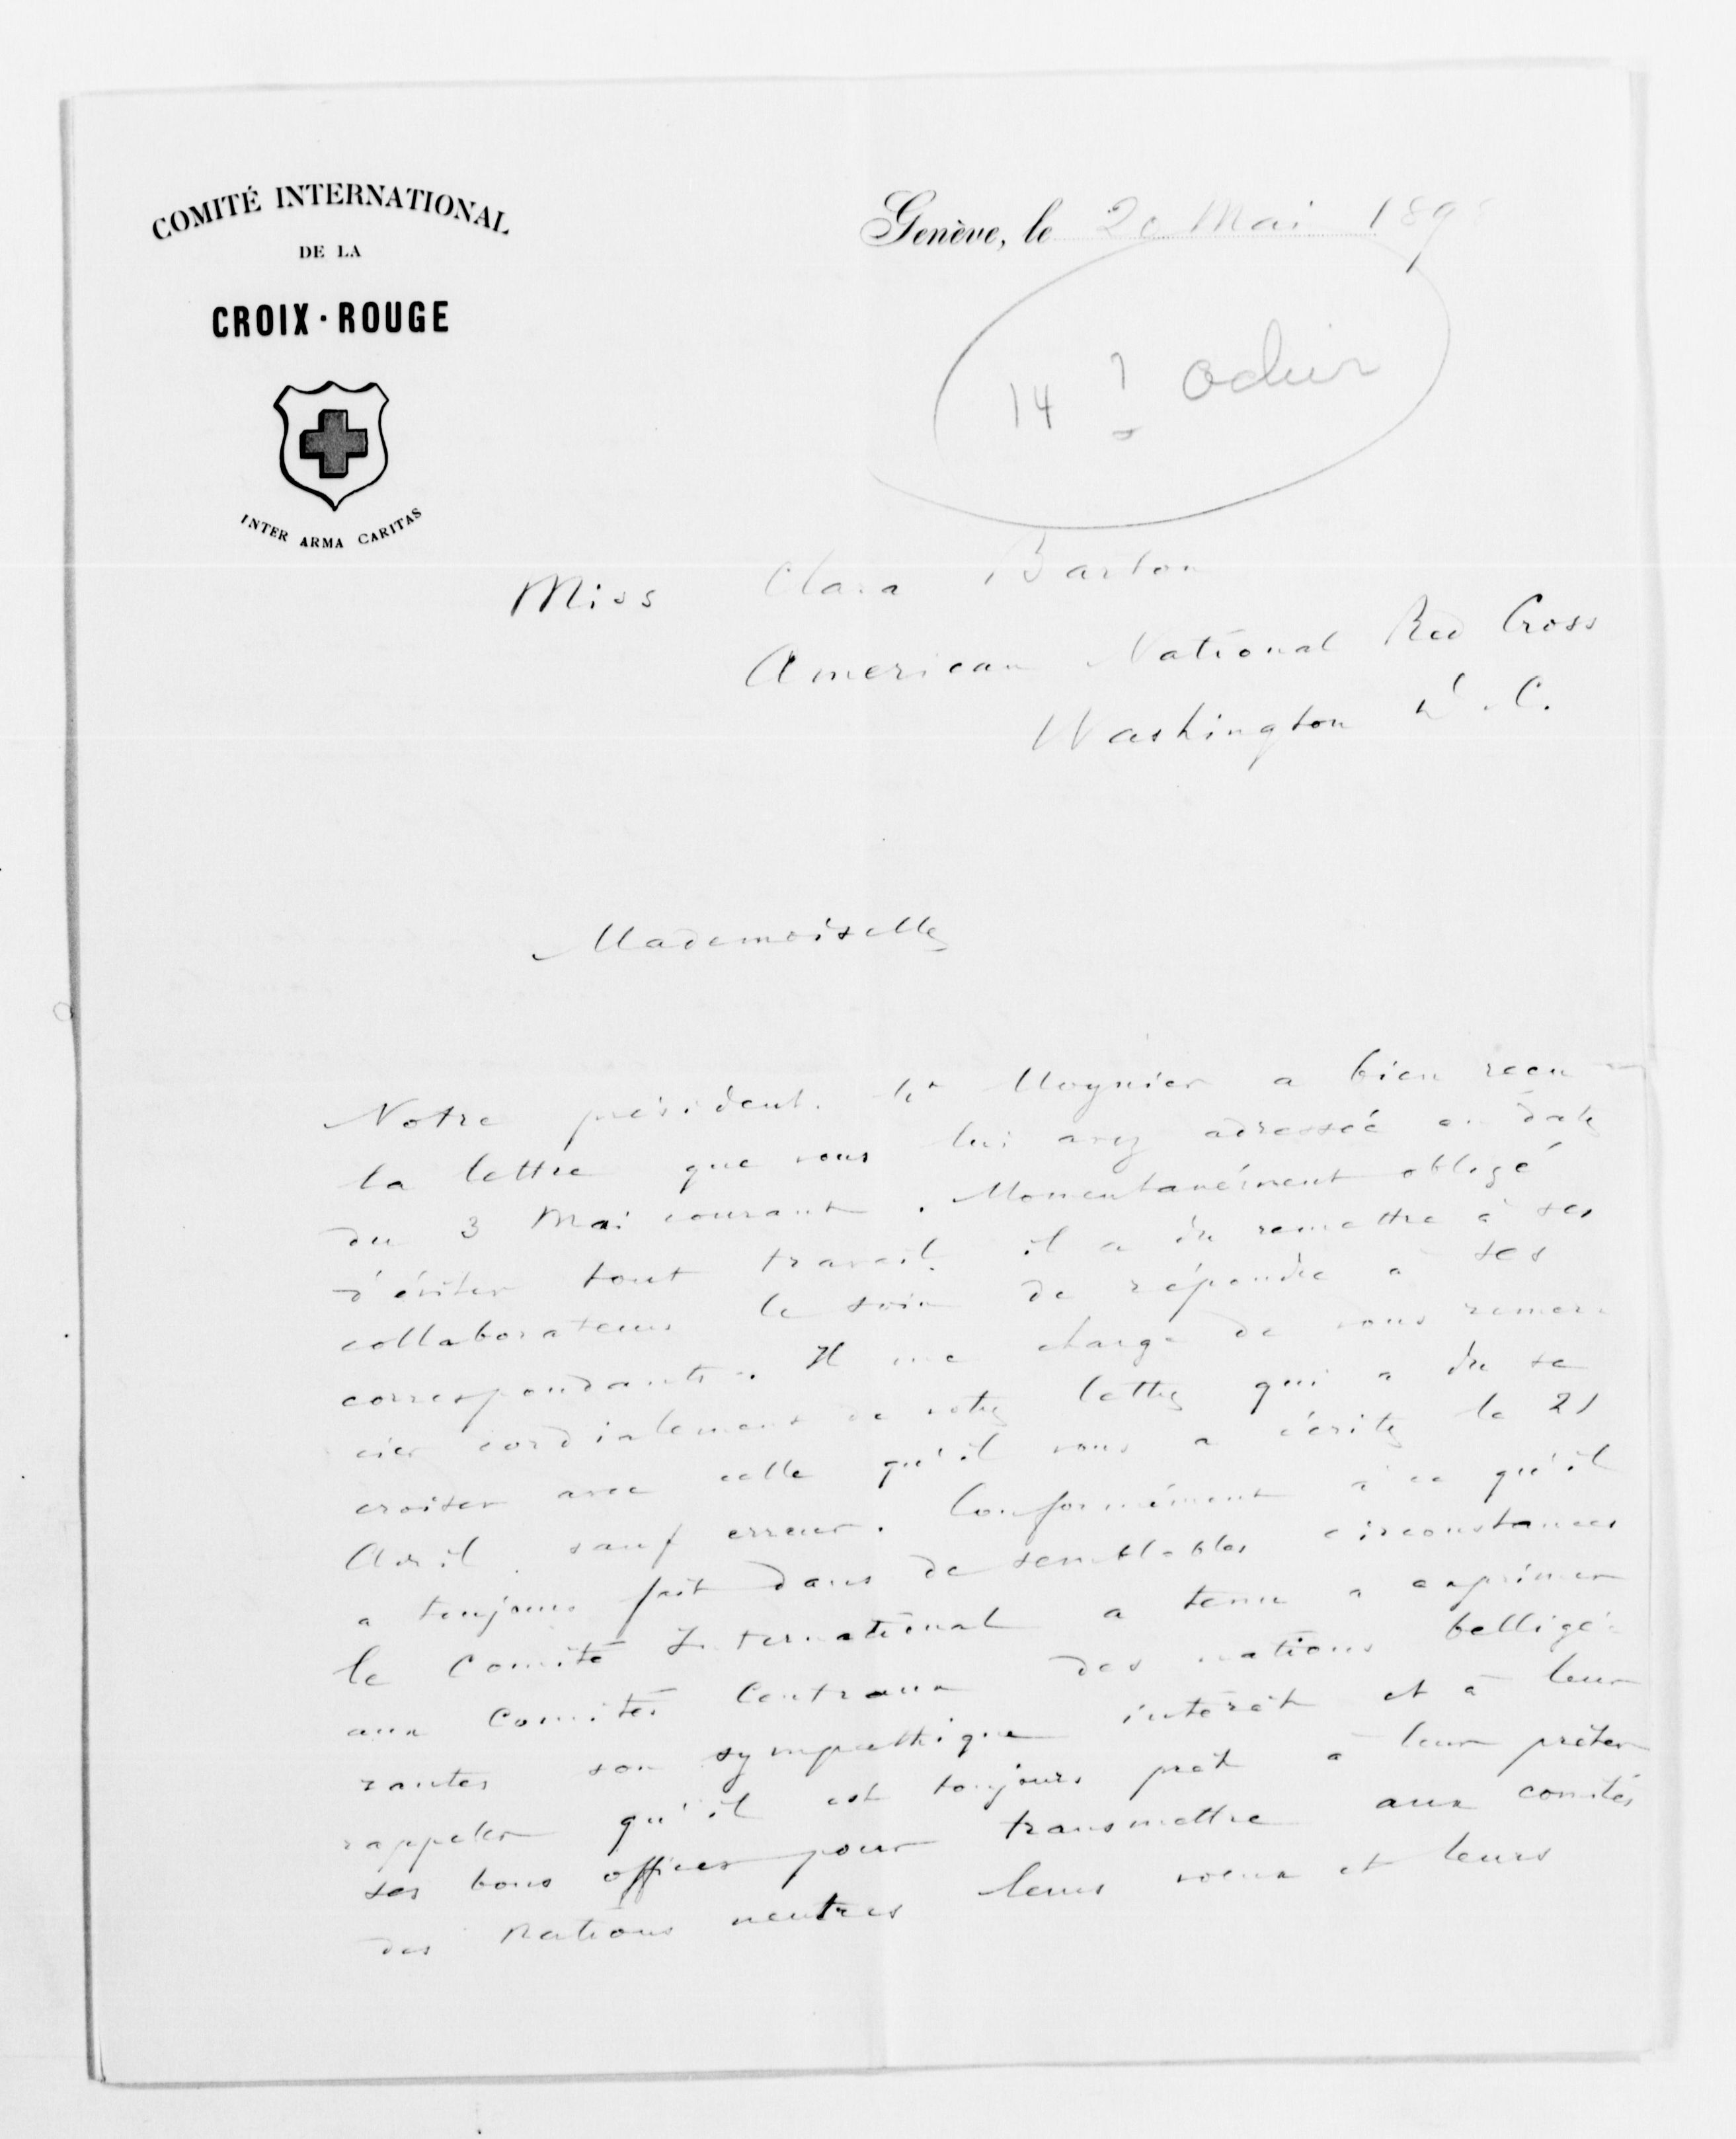 COMITÉ INTERNATIONAL
DE LA
CROIX-ROUGE
INTER ARMA CARITAS
Genève, le 20 Mai 1898
14
Odier
Miss Clara Barton
American National Red Cross
Washington D. C.
Mademoiselle
Notre président. Mr Moynier a bien reçu
la lettre que vous lui avez adressée en date
du 3 Mai courant. Momentanément obligé
d'éviter tout travail il a du remettre à ses
collaborateurs le soin de répondre à ses
correspondants. Il me charge de vous remer-
cier cordialement de votre lettre qui a du se
croiser avec celle qu'il vous a écrite le 21
Avril sauf erreur. Conformément à ce qu'il
a toujours fait dans de semblables circonstances
le Comité International a tenu à exprimer
aux Comités Centraux des nations belligé-
rantes son sympathique intérêt et à leur
rappeler qu'il est toujours prêt à leur prêter
ses bons offices pour transmettre aux comités
des nations neutres leurs voeux et leurs